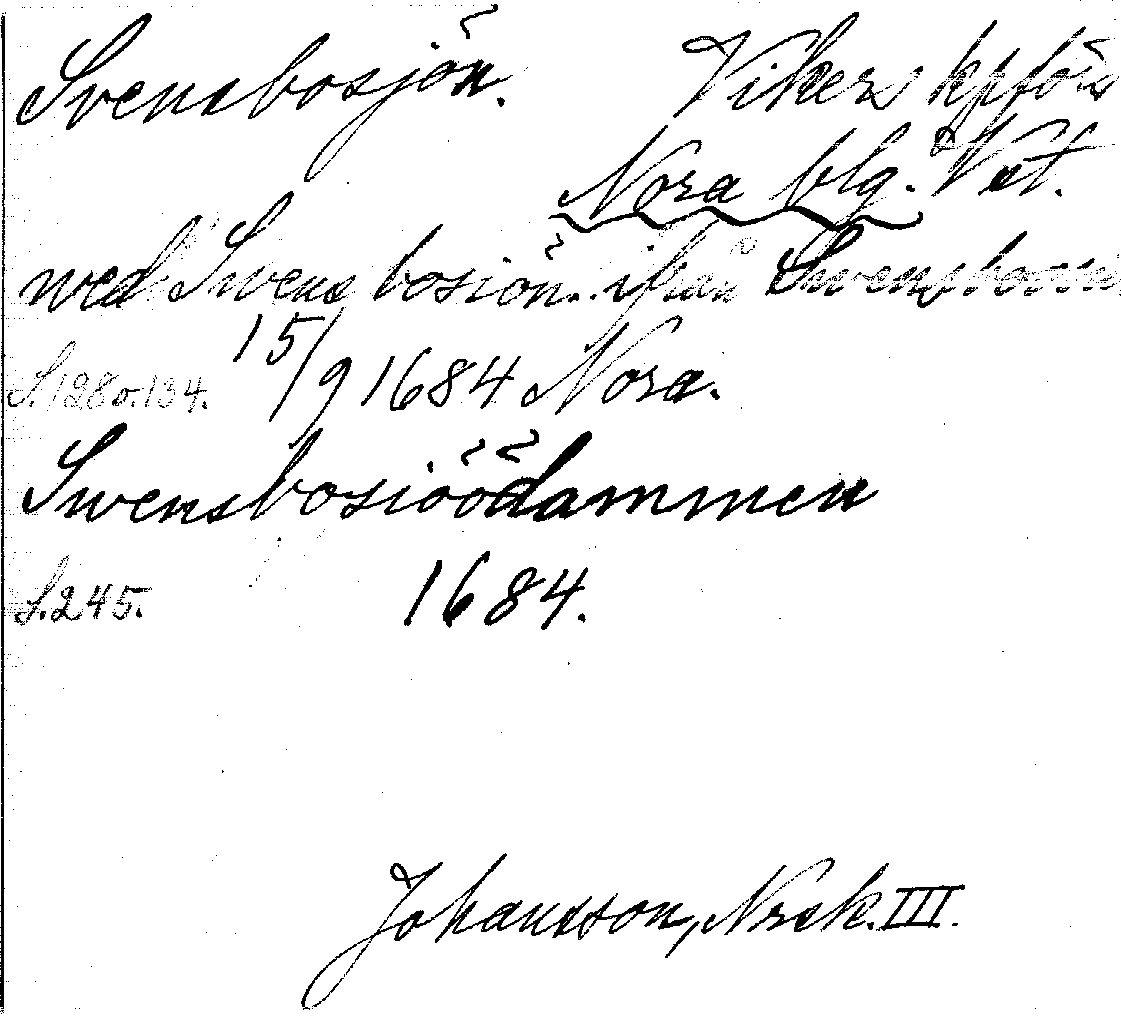 Svensbosjön. Vikers kpförs
Nora blg. Vst.
wed Swens bosiön.. ifrån Swensbosiö
S. 128 o. 134. 15/9 1684 Nora.
Swensbosiöödammen
S. 245. 1684.
Johansson, Nrsk. III.